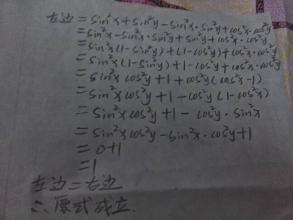 左边 = sin²x + sin²y - sin²x · sin²y + cos²x · cos²y
= sin²x - sin²x · sin²y + sin²y + cos²x · cos²y
= sin²x (1 - sin²y) + (1 - cos²y) + cos²x · cos²y
= sin²x (1 - sin²y) + 1 - cos²y + cos²x · cos²y
= sin²x cos²y + 1 + cos²y (cos²x - 1)
= sin²x cos²y + 1 - cos²y (1 - cos²x)
= sin²x cos²y + 1 - cos²y · sin²x
= sin²x cos²y - sin²x · cos²y + 1
= 0 + 1
= 1
左边 = 右边
∴ 原式成立.